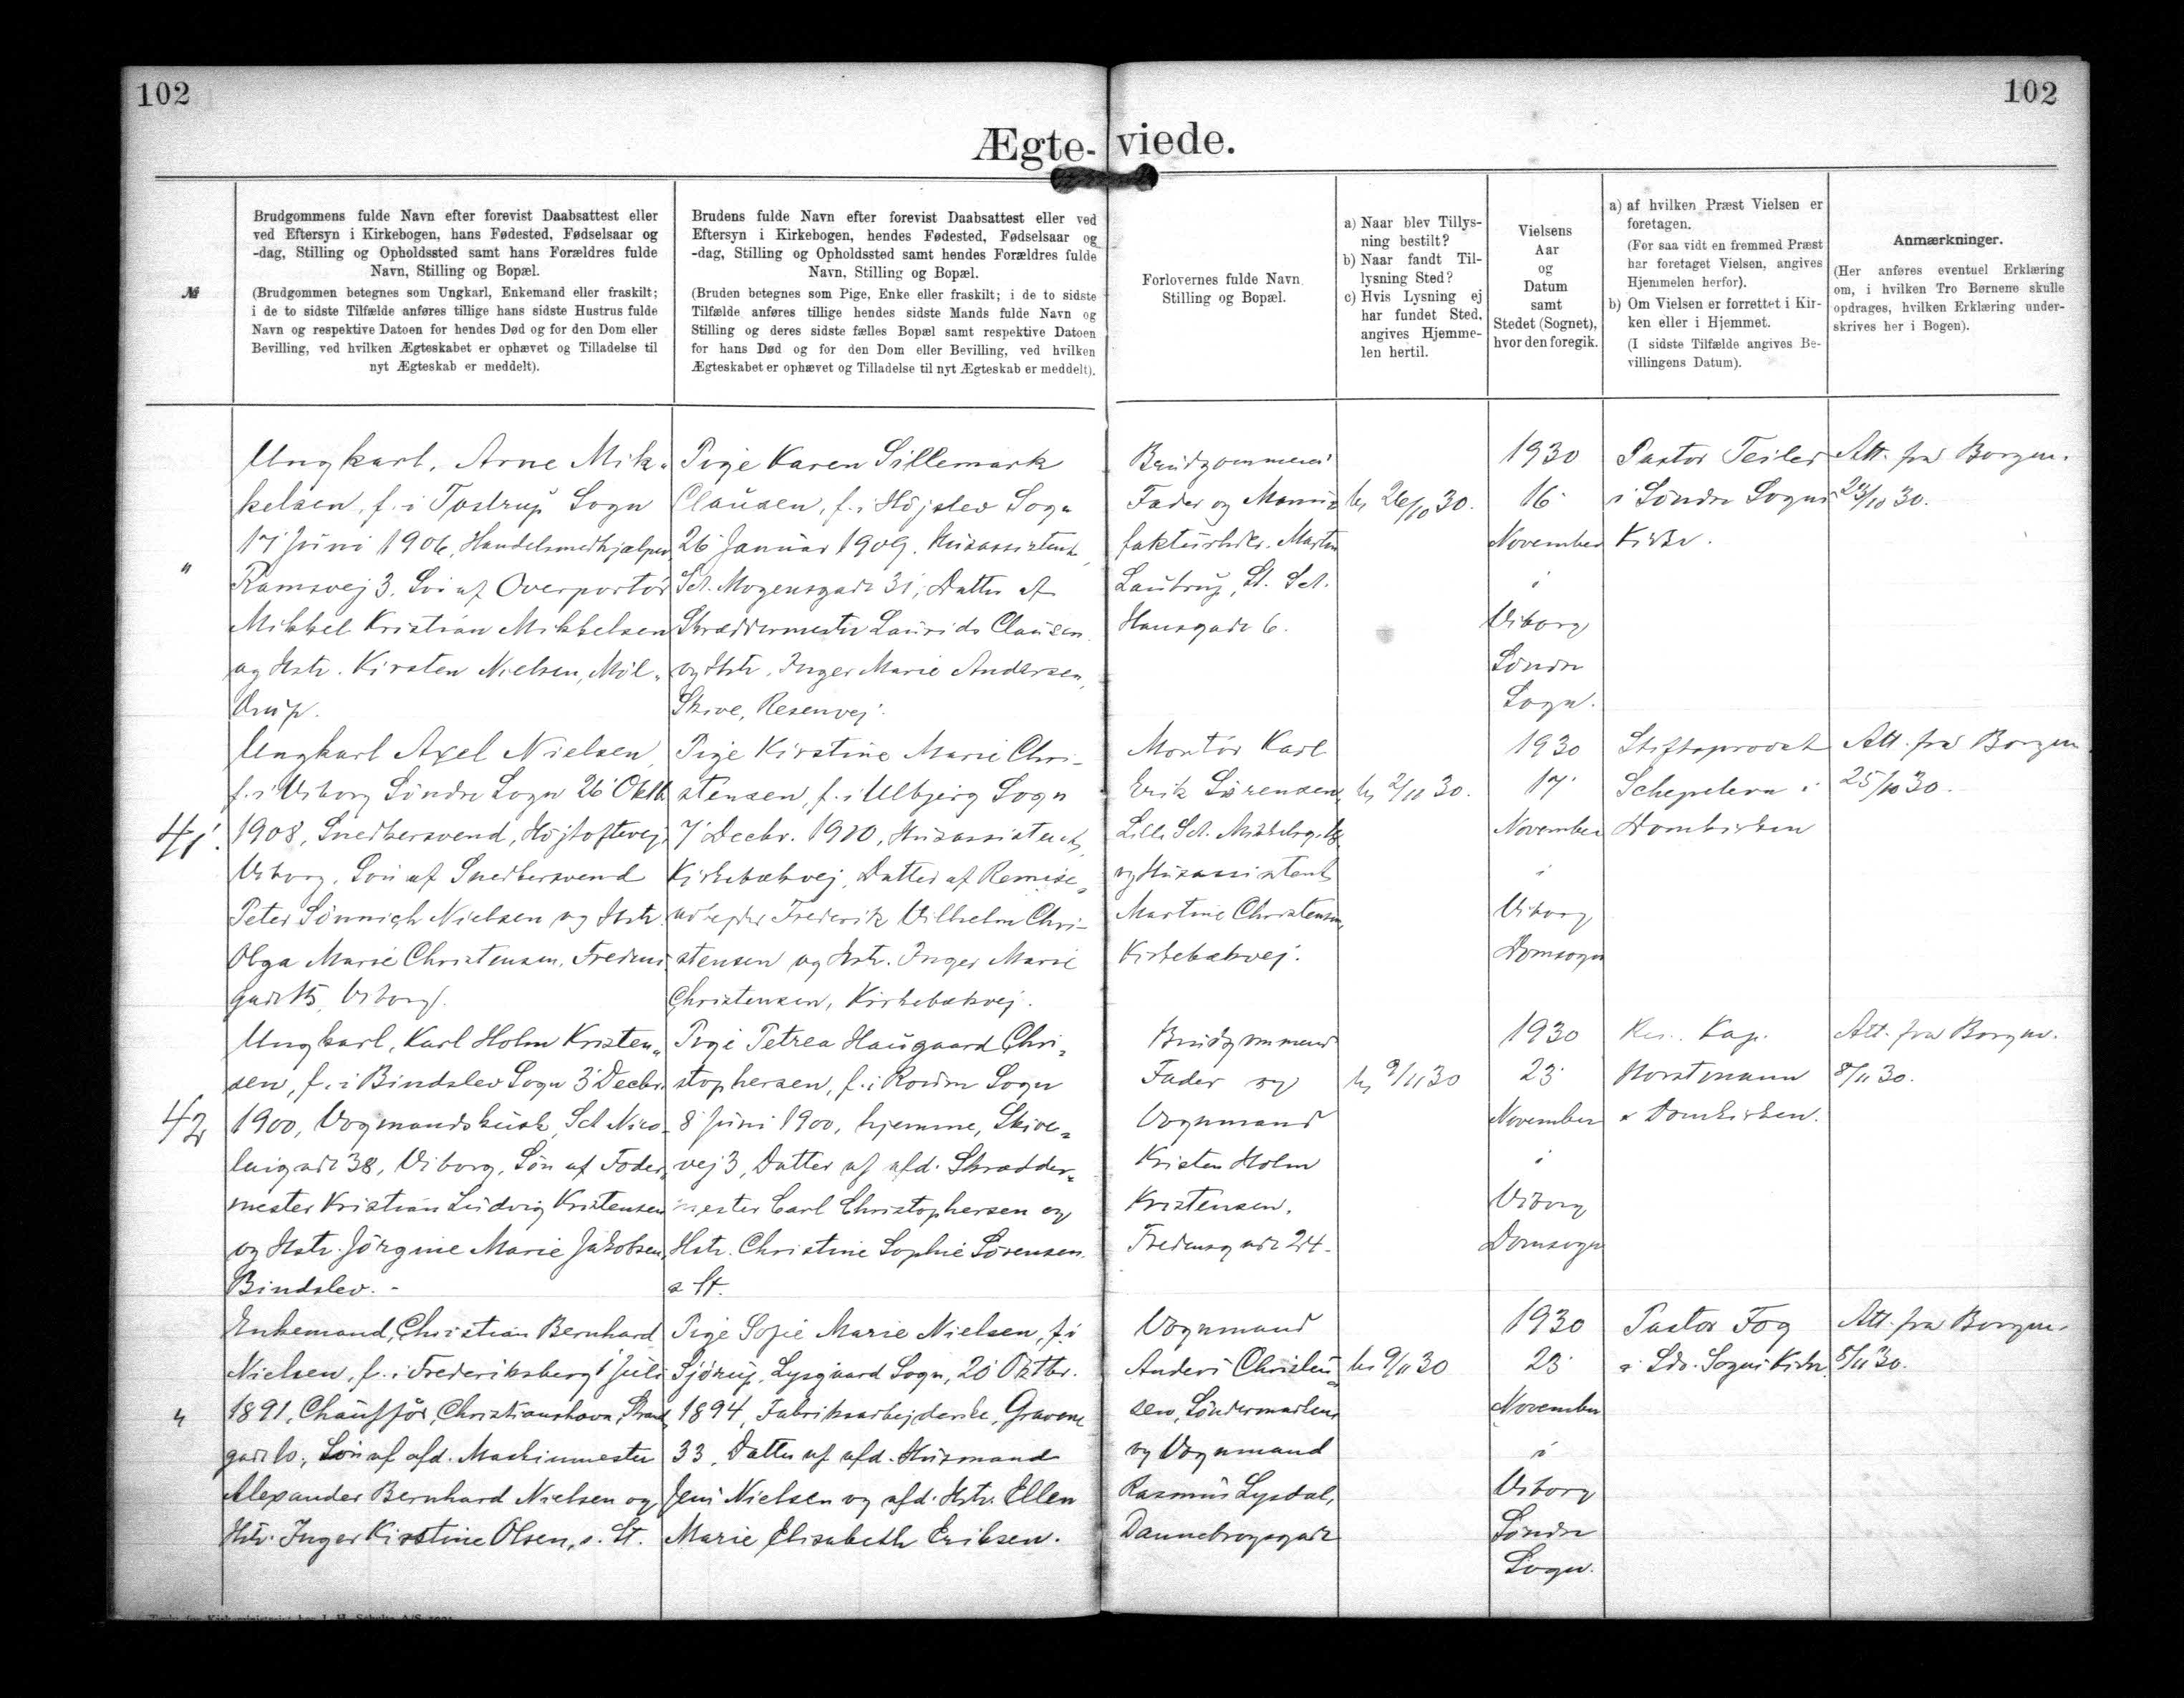 102
102
Ægte-viede.
№
Brudgommens fulde Navn efter forevist Daabsattest eller
ved Eftersyn i Kirkebogen, hans Fødested, Fødselsaar og
-dag, Stilling og Opholdssted samt hans Forældres fulde
Navn, Stilling og Bopæl.
(Brudgommen betegnes som Ungkarl, Enkemand eller fraskilt;
i de to sidste Tilfælde anføres tillige hans sidste Hustrus fulde
Navn og respektive Datoen for hendes Død og for den Dom eller
Bevilling, ved hvilken Ægteskabet er ophævet og Tilladelse til
nyt Ægteskab er meddelt).
Brudens fulde Navn efter forevist Daabsattest eller ved
Eftersyn i Kirkebogen, hendes Fødested, Fødselsaar og
-dag, Stilling og Opholdssted samt hendes Forældres fulde
Navn, Stilling og Bopæl.
(Bruden betegnes som Pige, Enke eller fraskilt; i de to sidste
Tilfælde anføres tillige hendes sidste Mands fulde Navn og
Stilling og deres sidste fælles Bopæl samt respektive Datoen
for hans Død og for den Dom eller Bevilling, ved hvilken
Ægteskabet er ophævet og Tilladelse til nyt Ægteskab er meddelt).
Forlovernes fulde Navn
Stilling og Bopæl.
a) Naar blev Tillys-
ning bestilt?
b) Naar fandt Til-
lysning Sted?
c) Hvis Lysning ej
har fundet Sted,
angives Hjemme-
len hertil.
Vielsens
Aar
og
Datum
samt
Stedet (Sognet),
hvor den foregik.
a) af hvilken Præst Vielsen er
foretagen.
(For saa vidt en fremmed Præst
har foretaget Vielsen, angives
Hjemmelen herfor).
b) Om Vielsen er forrettet i Kir-
ken eller i Hjemmet.
(I sidste Tilfælde angives Be-
villingens Datum).
Anmærkninger.
(Her anføres eventuel Erklæring
om, i hvilken Tro Børnene skulle
opdrages, hvilken Erklæring under-
skrives her i Bogen).
"
Ungkarl, Arne Mik-
kelsen, f. i Tostrup Sogn
17 Juni 1906, Handelsmedhjælper,
Ramsvej 3. Søn af Overportør
Mikkel Kristian Mikkelsen
og Hstr. Kirsten Nielsen, Møl-
drup.
Pige Karen Sillemark
Clausen, f. i Højslev Sogn
26 Januar 1909. Husassistent,
Sct. Mogensgade 31, Datter af
Skræddermester Laurids Clausen
og Hstr. Inger Marie Andersen,
Skive, Resenvej.
Brudgommens
Fader og Manu-
fakturhdlr. Martin
Lautrup, St. Sct.
Hansgade 6.
26/10 30.
1930
16
November
i
Viborg
Søndre
Sogn.
Pastor Teiler
i Søndre Sogns
Kirke.
Att. fra Borgm.
23/10 30.
41.
Ungkarl Axel Nielsen,
f. i Viborg Søndre Sogn 26 Oktb.
1908, Snedkersvend, Højtoftevej,
Viborg. Søn af Snedkersvend
Peter Sønnich Nielsen og Hstr.
Olga Marie Christensen, Fredens-
gade 15, Viborg.
Pige Kirstine Marie Chri-
stensen, f. i Ulbjerg Sogn
7 Decbr. 1910, Husassistent,
Kirkebækvej, Datter af Remise-
Frederik Vilhelm Chri-
stensen og Hstr. Inger Marie
Christensen, Kirkebækvej.
Montør Karl
Erik Sørensen,
Lille Sct. Mikkelsg. 18
og Husassistent
Martine Christensen,
Kirkebækvej.
2/11 30.
1930
17
November
i
Viborg
Domsogn
Stiftsprovst
Schepelern i
Domkirken
Att. fra Borgm.
25/10 30.
42
Ungkarl, Karl Holm Kristen-
sen, f. i Bindslev Sogn 3 Decbr.
1900, Vogmandskusk, Sct Nico-
laigade 38, Viborg, Søn af Foder-
mester Kristian Ludvig Kristensen
og Hstr. Jørgine Marie Jakobsen,
Bindslev. -
Pige Petrea Haugaard Chri-
stophersen, f. i Rørdm Sogn
8 Juni 1900, hjemme, Skive-
vej 3, Datter af afd. Skrædder-
mester Carl Christophersen og
Hstr. Christine Sophie Sørensen.
s St.
Brudgommens
Fader og
Vognmand
Kristen Holm
Kristensen,
Fredensgade 24.
9/11 30
1930
23
November
i
Viborg
Domsogn
Res. Kap.
Horstmann
i Domkirken.
Att. fra Borgm.
8/11 30.
"
Enkemand, Christian Bernhard
Nielsen, f. i Frederiksberg 1 Juli
1891, Chauffør, Christianshavn, Strand
gade 10, Søn af afd. Maskinmester
Alexander Bernhard Nielsen og
Hstr. Inger Kirstine Olsen, s. St.
Pige Sofie Marie Nielsen, f. i
Sjørup, Lysgaard Sogn, 20 Oktbr.
1894, Fabriksarbejderske, Gravene
33, Datter af afd. Husmand
Jens Nielsen og afd. Hstr. Ellen
Marie Elisabeth Eriksen.
Vognmand
Anders Christen-
sen, Søndermarken
og Vognmand
Rasmus Lysdal,
Dannebrogsgade
9/11 30
1930
23
November
i
Viborg
Søndre
Sogn.
Pastor Fog
i Sdr. Sogns Kirke.
Att. fra Borgm.
8/11 30.